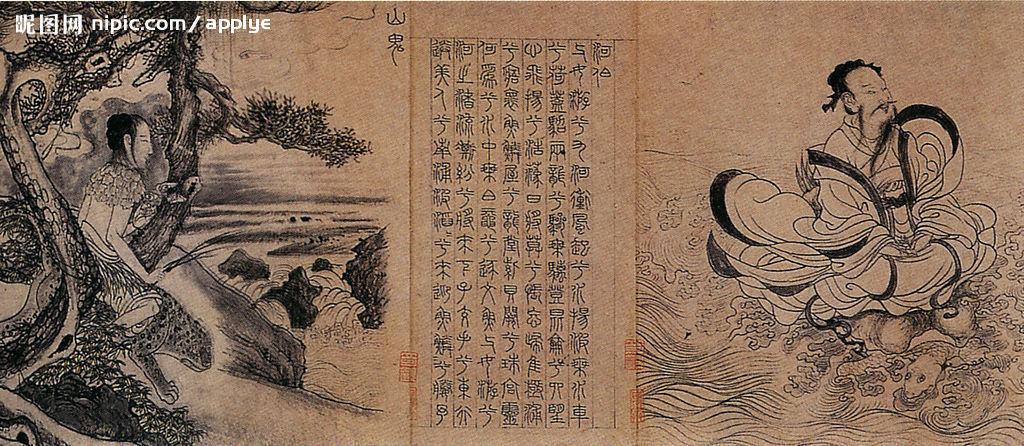 昵图网 nipic.com/applye
河伯
与女游兮九河衝風起兮水揚波乘水車
兮荷蓋駕兩龍兮驂螭登昆侖兮四望
心飛揚兮浩蕩日將莫兮悵忘歸惟極浦
兮寤懷魚鱗屋兮龍堂紫貝闕兮珠宮靈
何為兮水中乘白黿兮逐文魚与女游兮
河之渚流澌紛兮將來下子交手兮東行
送美人兮南浦波滔兮來迎魚鱗兮媵予
山鬼